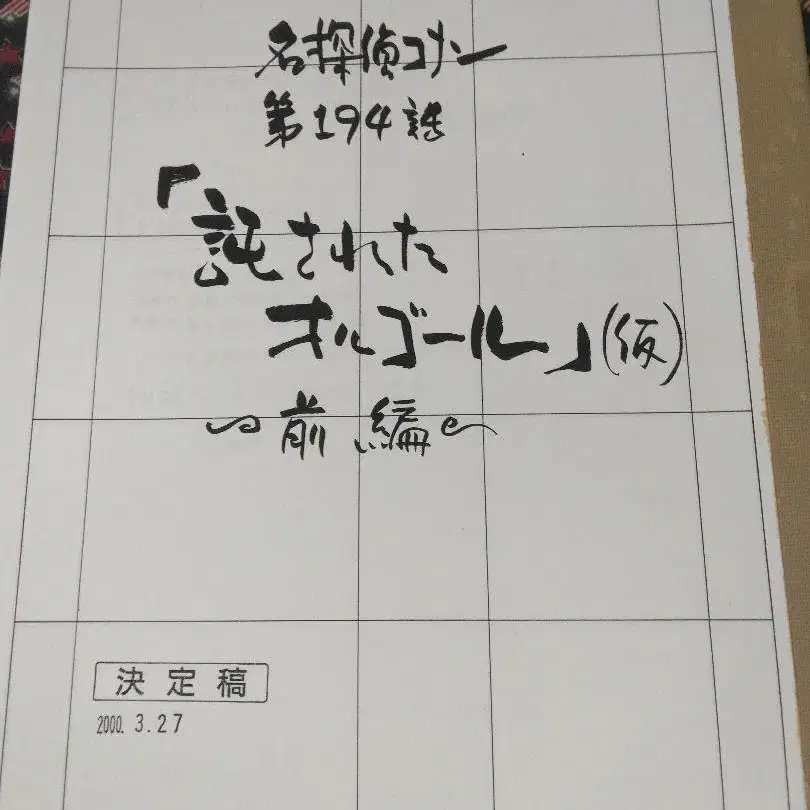 名探偵コナン
第194話
「託された
オルゴール」(仮)
〜前編〜
決定稿
2000. 3.27